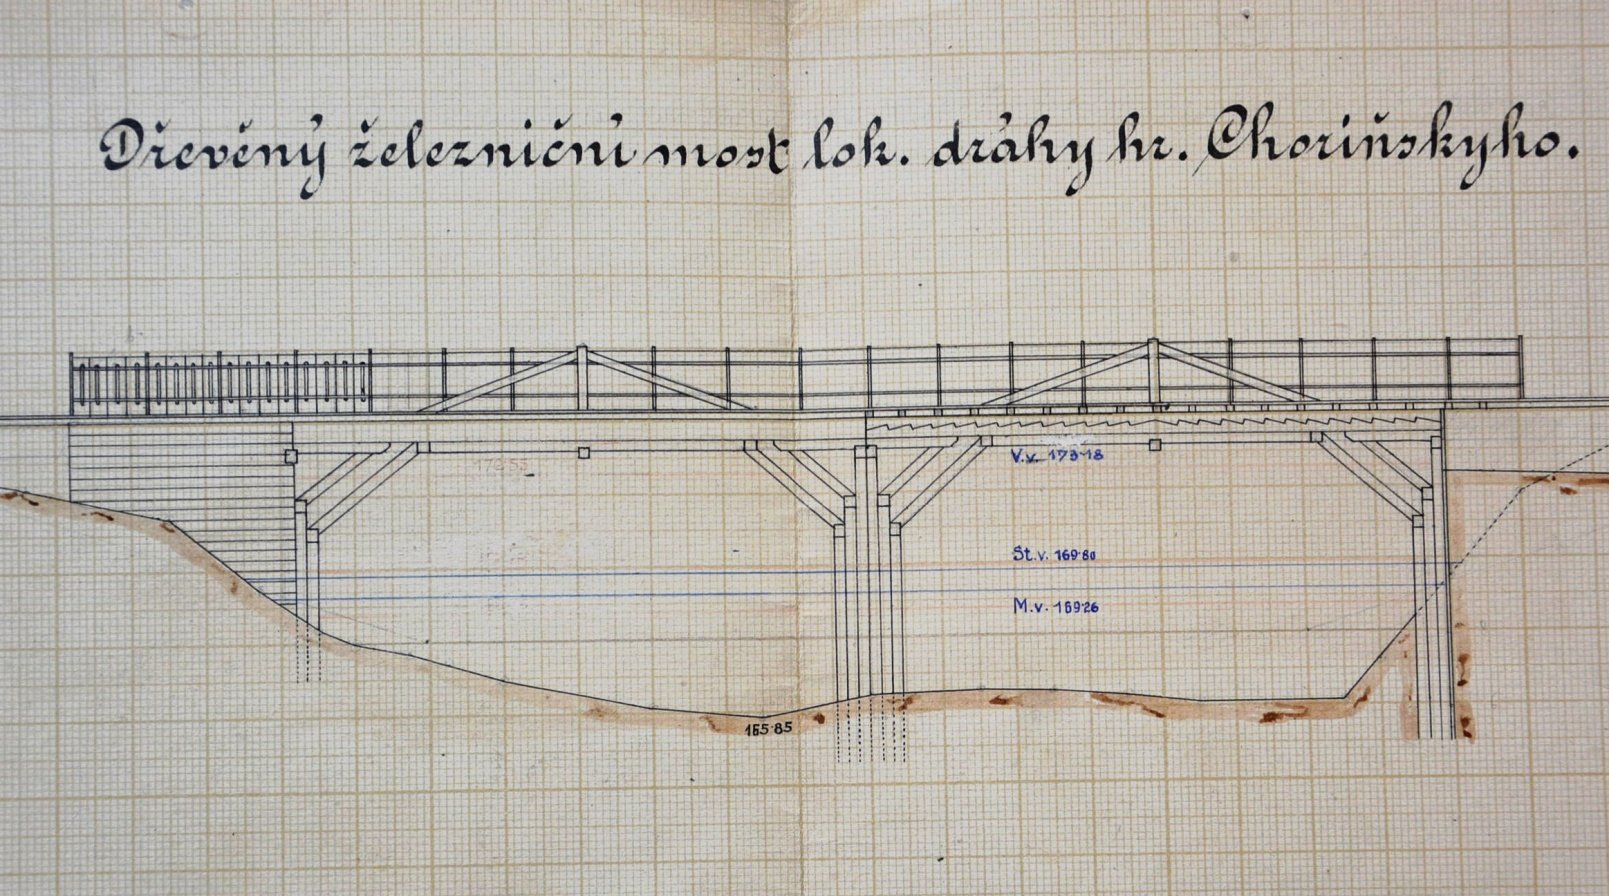 Dřevěný železniční most lok. dráhy hr. Choriňskyho.
V.v. 173·18
St.v. 169·80
M.v. 169·26
165·85